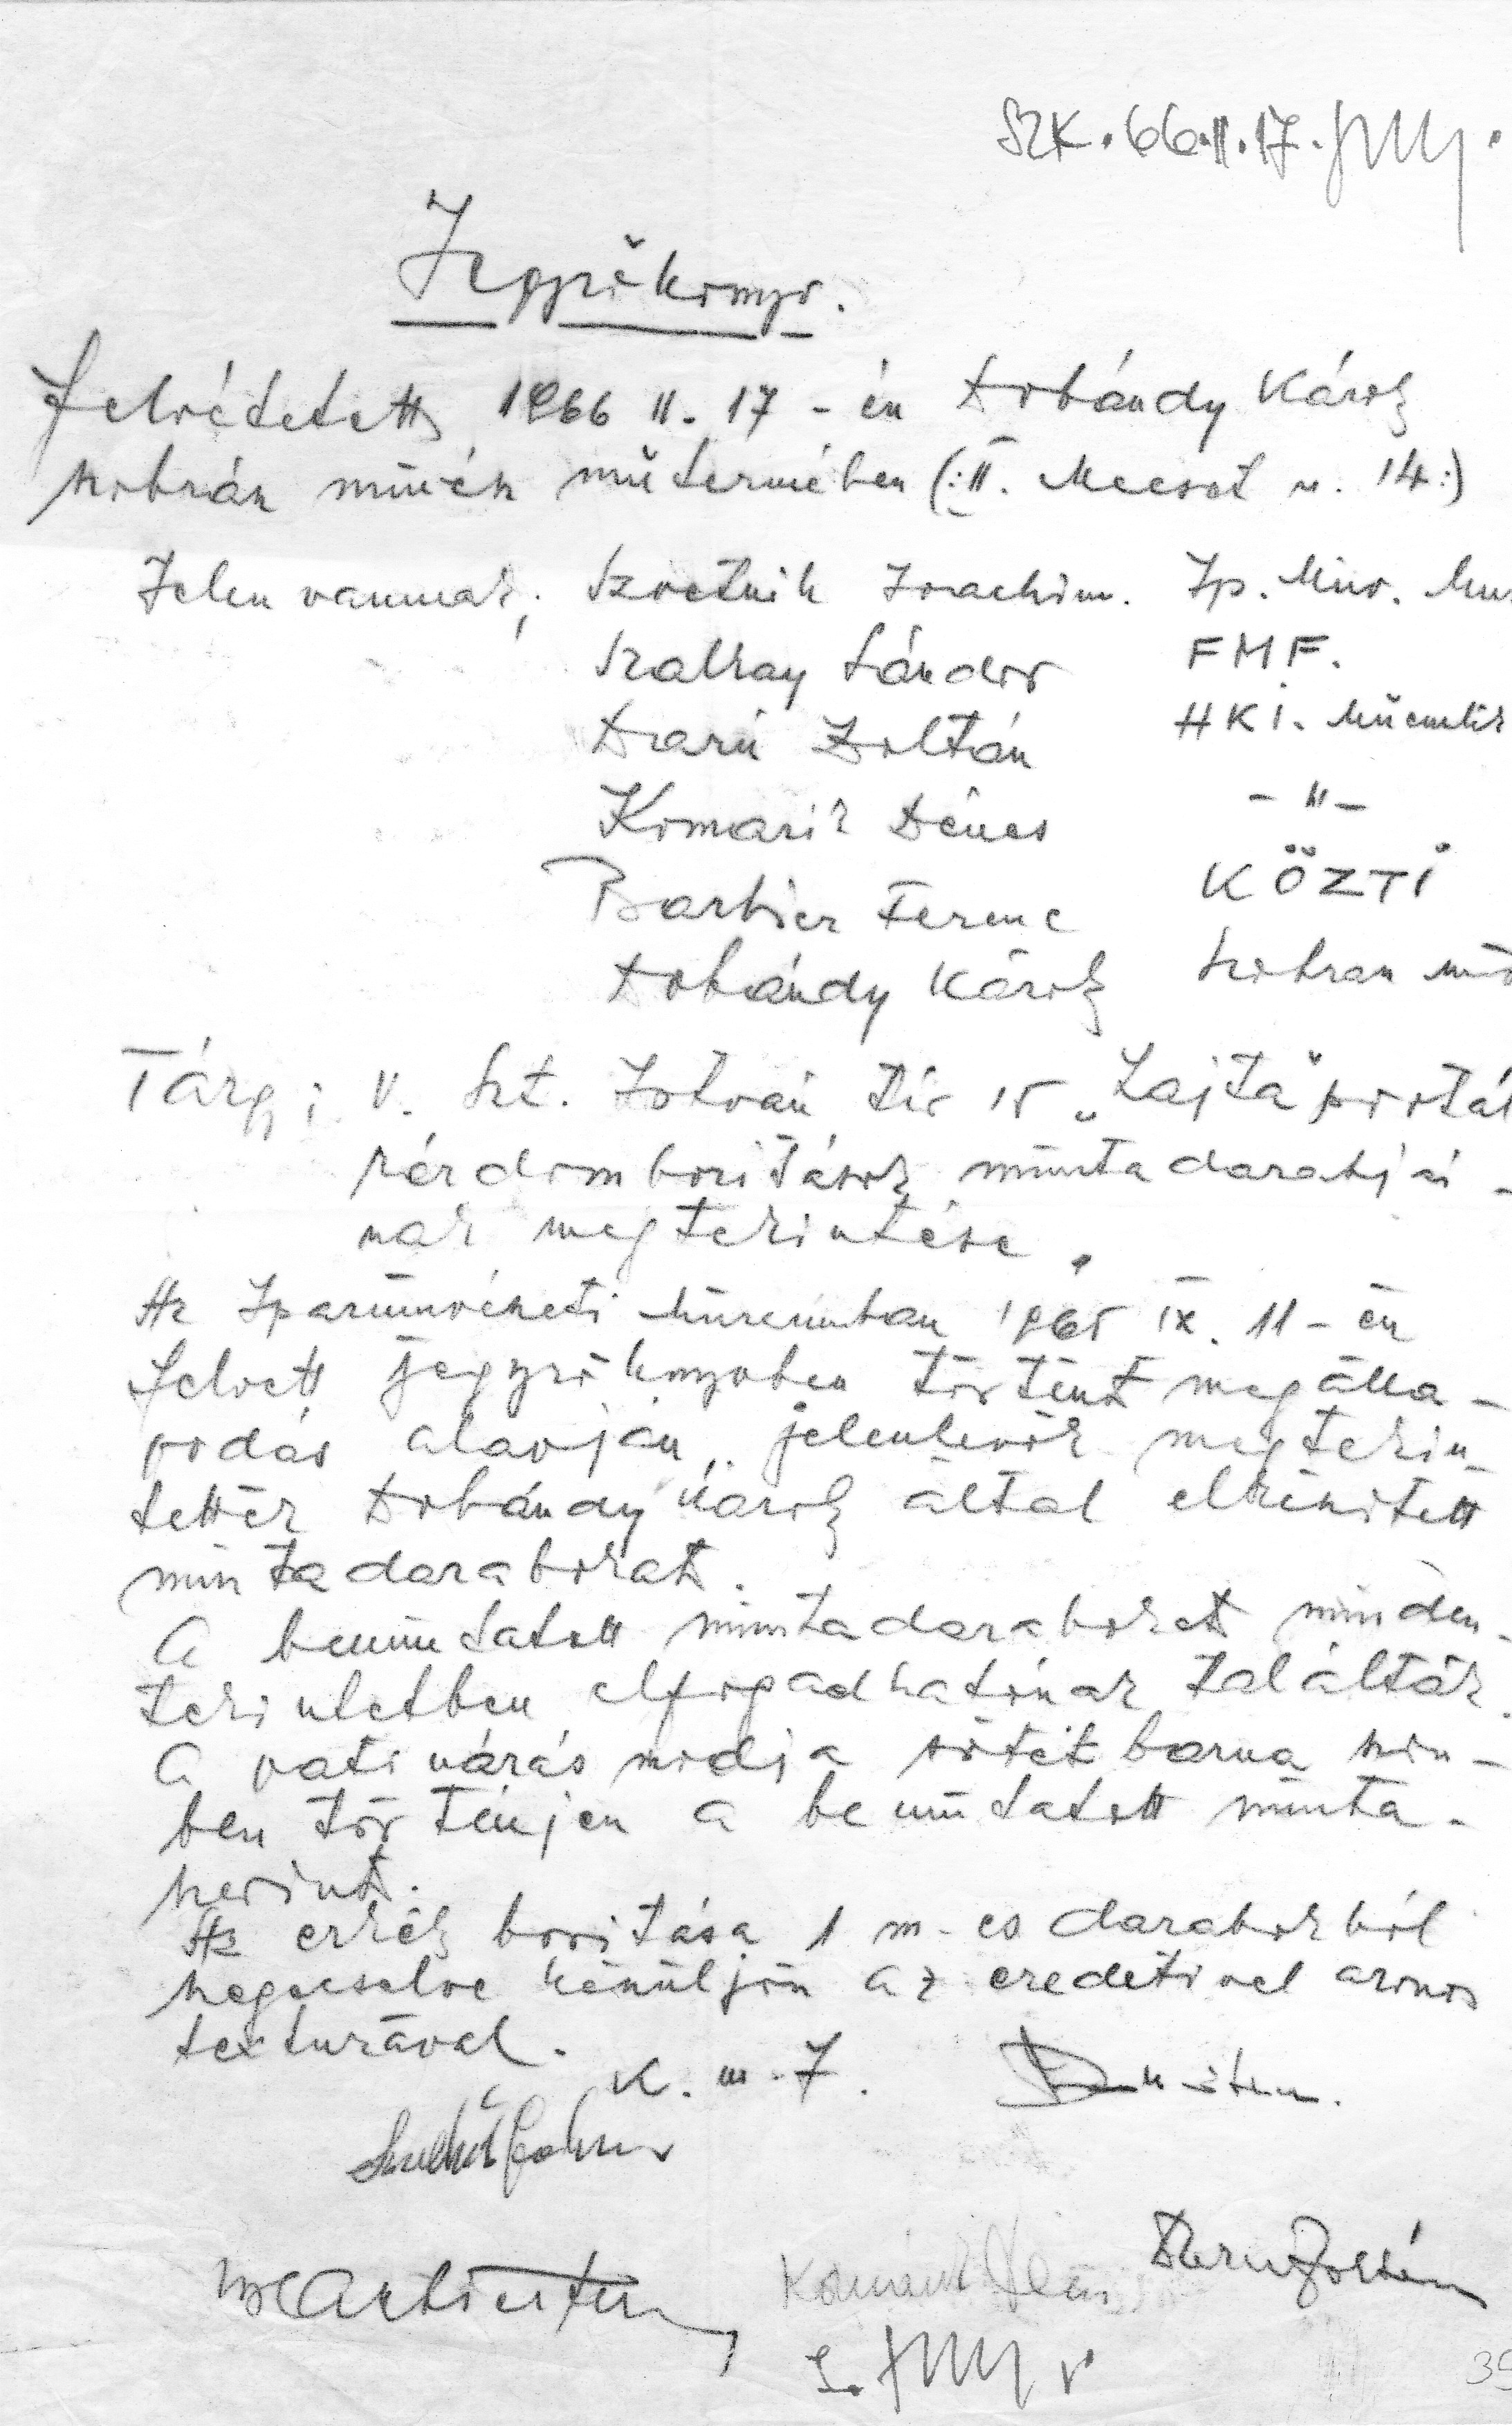 SZK. 66.II.17.
Jegyzőkönyv.
Felvétetett 1966 II. 17-én Dobándy Károly
szobrász művész műtermében (: II. Mecset u. 14 :)
Jelen vannak; Szvetnik Joachim. Ip. Műv. Mu
Szalkay Sándor FMF.
Darú Zoltán HKI. Műemlék
Komarik Dénes - " -
Barbier Ferenc KÖZTI
Dobándy Károly Szobrász mű
Tárgy; V. Szt. István tér 15 „Lajta" portál
rézdomborítások mintadarabjai-
nak megtekintése.
Az Iparművészeti Múzeumban 1965 IX. 11-én
felvett jegyzőkönyvben történt megálla-
podás alapján, jelenlevők megtekin-
tették Dobándy Károly által elkészített
mintadarabokat.
A bemutatott mintadarabokat minden-
tekintetben elfogadhatónak találták.
A patinázás módja sötét barna szín-
ben történjen a bemutatott minta-
szerint.
Az erkély borítása 1 m-es darabokból
szegecselve készüljön az eredetivel azonos
texturával.
K. m. F.
Komárik Dénes
35